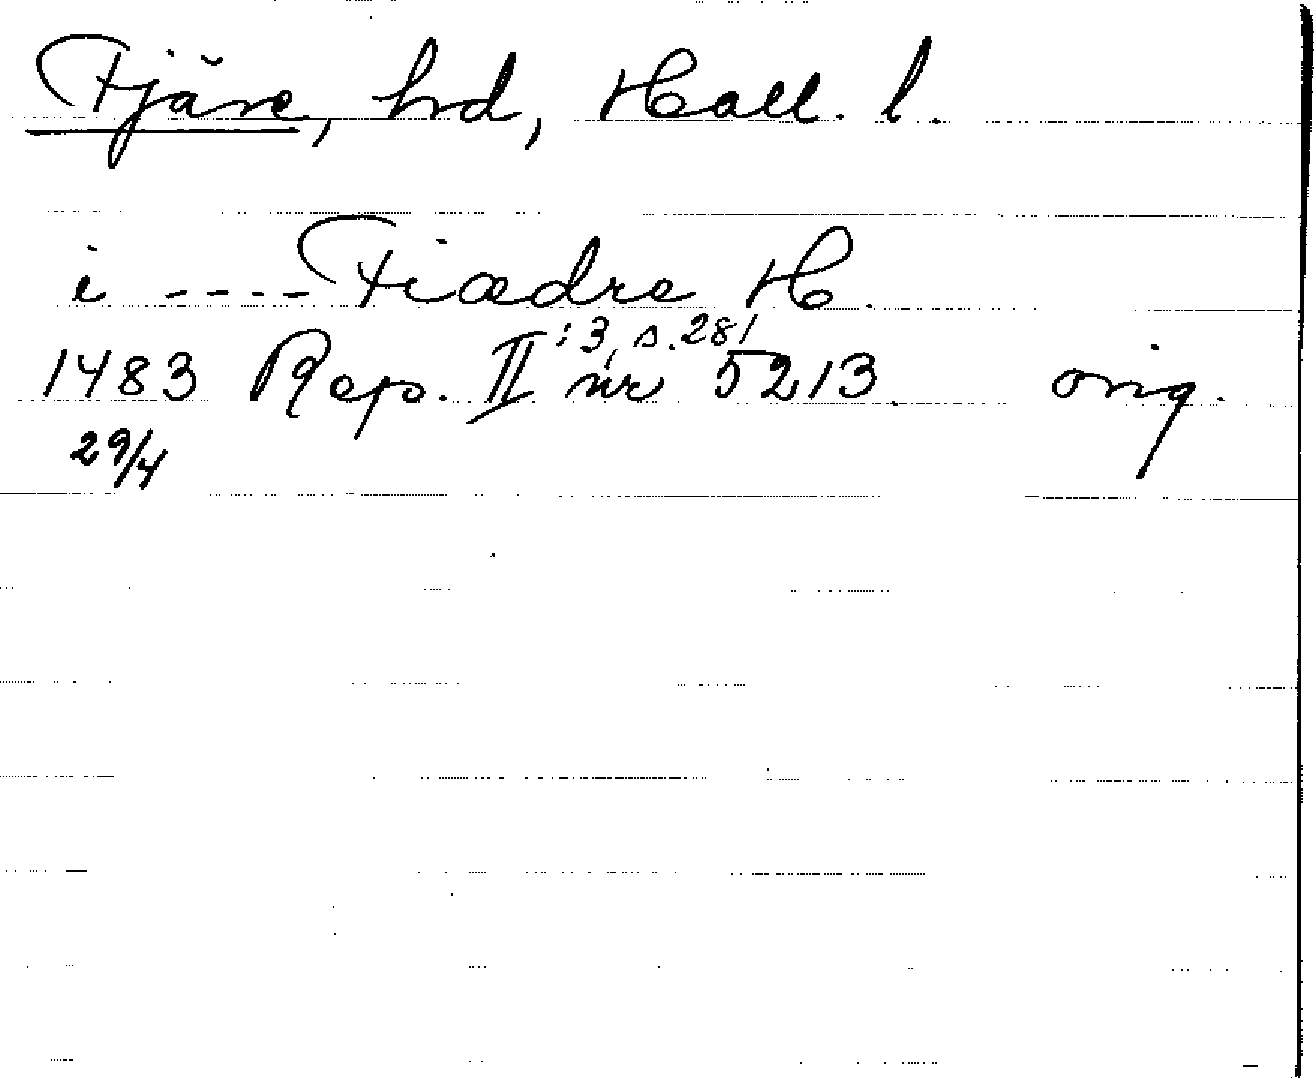 Fjäre, hd, Hall. l.
i ---- Fiædre H.
1483 Rep. II:3, s. 281 nr 5213. orig.
29/4